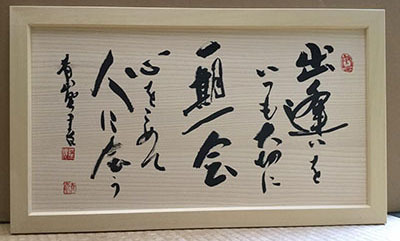 出逢いを
いつも大切に
一期一会
心をこめて
人に会う